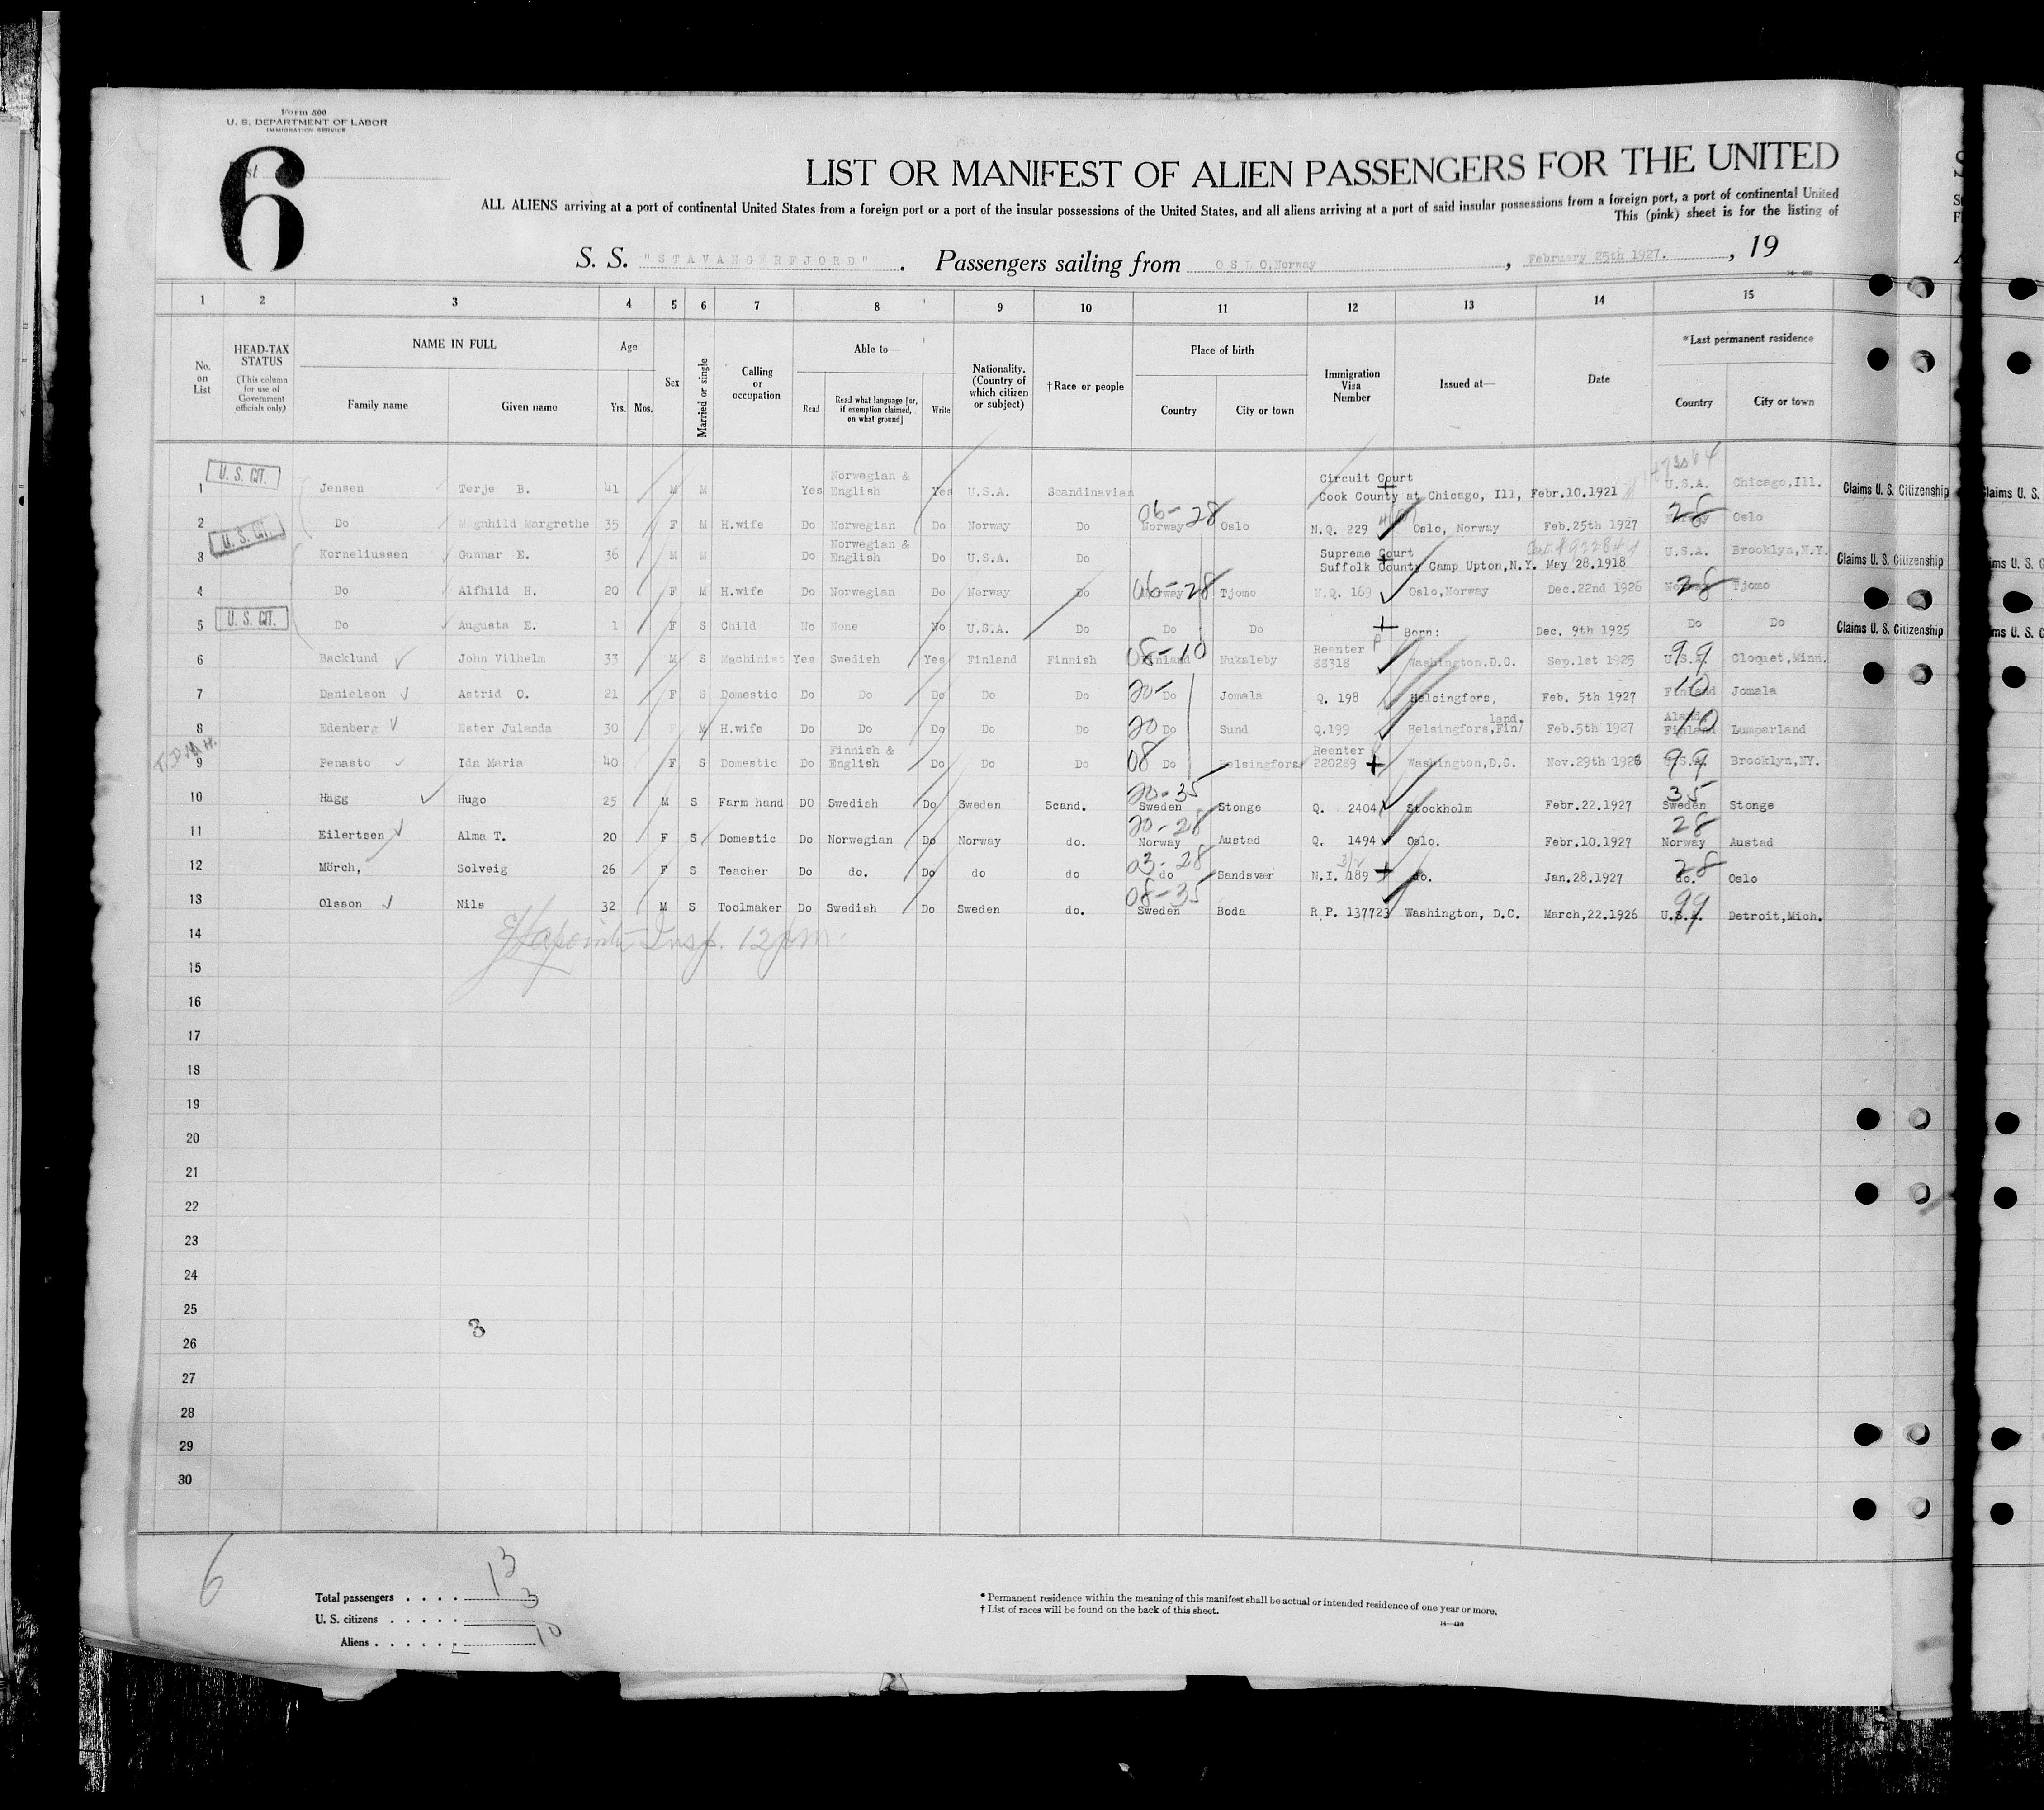 Form 500
U. S. DEPARTMENT OF LABOR
IMMIGRATION SERVICE
6
LIST OR MANIFEST OF ALIEN PASSENGERS FOR THE UNITED
ALL ALIENS arriving at a port of continental United States from a foreign port or a port of the insular possessions of the United States, and all aliens arriving at a port of said insular possessions from a foreign port, a port of continental United
This (pink) sheet is for the listing of
S. S. "STAVANGERFJORD". Passengers sailing from OSLO, Norway, February 25th 1927., 19
1 2 3 4 5 6 7 8 9 10 11 12 13 14 15
No. on List
HEAD-TAX STATUS (This column for use of Government officials only)
NAME IN FULL Family name Given name
Age Yrs. Mos.
Sex
Married or single
Calling or occupation
Able to— Read Read what language [or, if exemption claimed, on what ground] Write
Nationality. (Country of which citizen or subject)
†Race or people
Place of birth Country City or town
Immigration Visa Number
Issued at—
Date
*Last permanent residence Country City or town
1 U. S. CIT. Jensen Terje B. 41 M M Yes Norwegian & English Yes U.S.A. Scandinavian Circuit Court Cook County at Chicago, Ill, Febr.10.1921 U.S.A. Chicago,Ill. Claims U. S. Citizenship
2 Do Magnhild Margrethe 35 F H.wife M Do Norwegian Do Norway Do 06-28 Norway Oslo N.Q. 229 Oslo, Norway Feb.25th 1927 28 Oslo
3 U. S. CIT. Korneliussen Gunnar E. 36 M M Do Norwegian & English Do U.S.A. Do Supreme Court Suffolk County Camp Upton,N.Y. May 28.1918 U.S.A. Brooklyn,N.Y. Claims U. S. Citizenship
4 Do Alfhild H. 20 F M H.wife Do Norwegian Do Norway Do 06-28 Norway Tjomo N.Q. 169 Oslo,Norway Dec.22nd 1926 Norway 28 Tjomo
5 U. S. CIT. Do Augusta E. 1 F S Child No None No U.S.A. Do Do Do Born: Dec. 9th 1925 Do Do Claims U. S. Citizenship
6 Backlund John Vilhelm 33 M S Machinist Yes Swedish Yes Finland Finnish 08-10 Finland Nukaleby Reenter P 88318 Washington,D.C. Sep.1st 1925 U.S.A. 99 Cloquet,Minn.
7 Danielson Astrid O. 21 F S Domestic Do Do Do Do Do 20- Do Jomala Q. 198 Helsingfors, Feb. 5th 1927 Finland 10 Jomala
8 Edenberg Ester Julanda 30 F M H.wife Do Do Do Do Do 20 Do Sund Q.199 Helsingfors,Fin/land. Feb.5th 1927 Aland Finland 10 Lumparland
9 Penasto Ida Maria 40 F S Domestic Do Finnish & English Do Do Do 08 Do Helsingfors Reenter P 220289 Washington,D.C. Nov.29th 1926 U.S.A. 99 Brooklyn,NY.
10 Hägg Hugo 25 M S Farm hand DO Swedish Do Sweden Scand. 20-35 Sweden Stonge Q. 2404 Stockholm Febr.22.1927 35 Sweden Stonge
11 Eilertsen Alma T. 20 F S Domestic Do Norwegian Do Norway do. 20-28 Norway Austad Q. 1494 Oslo. Febr.10.1927 28 Norway Austad
12 Mörch, Solveig 26 F S Teacher Do do. Do do do 03-28 do Sandsvær N.I. 189 do. Jan.28.1927 28 do. Oslo
13 Olsson Nils 32 M S Toolmaker Do Swedish Do Sweden do. 08-35 Sweden Boda R.P. 137723 Washington, D.C. March,22.1926 U.S.A. 99 Detroit,Mich.
14 Insp. 12 pm.
15
16
17
18
19
20
21
22
23
24
25
3
26
27
28
29
30
6
Total passengers . . . . 13
U. S. citizens . . . . . 3
Aliens . . . . . . 10
* Permanent residence within the meaning of this manifest shall be actual or intended residence of one year or more.
† List of races will be found on the back of this sheet.